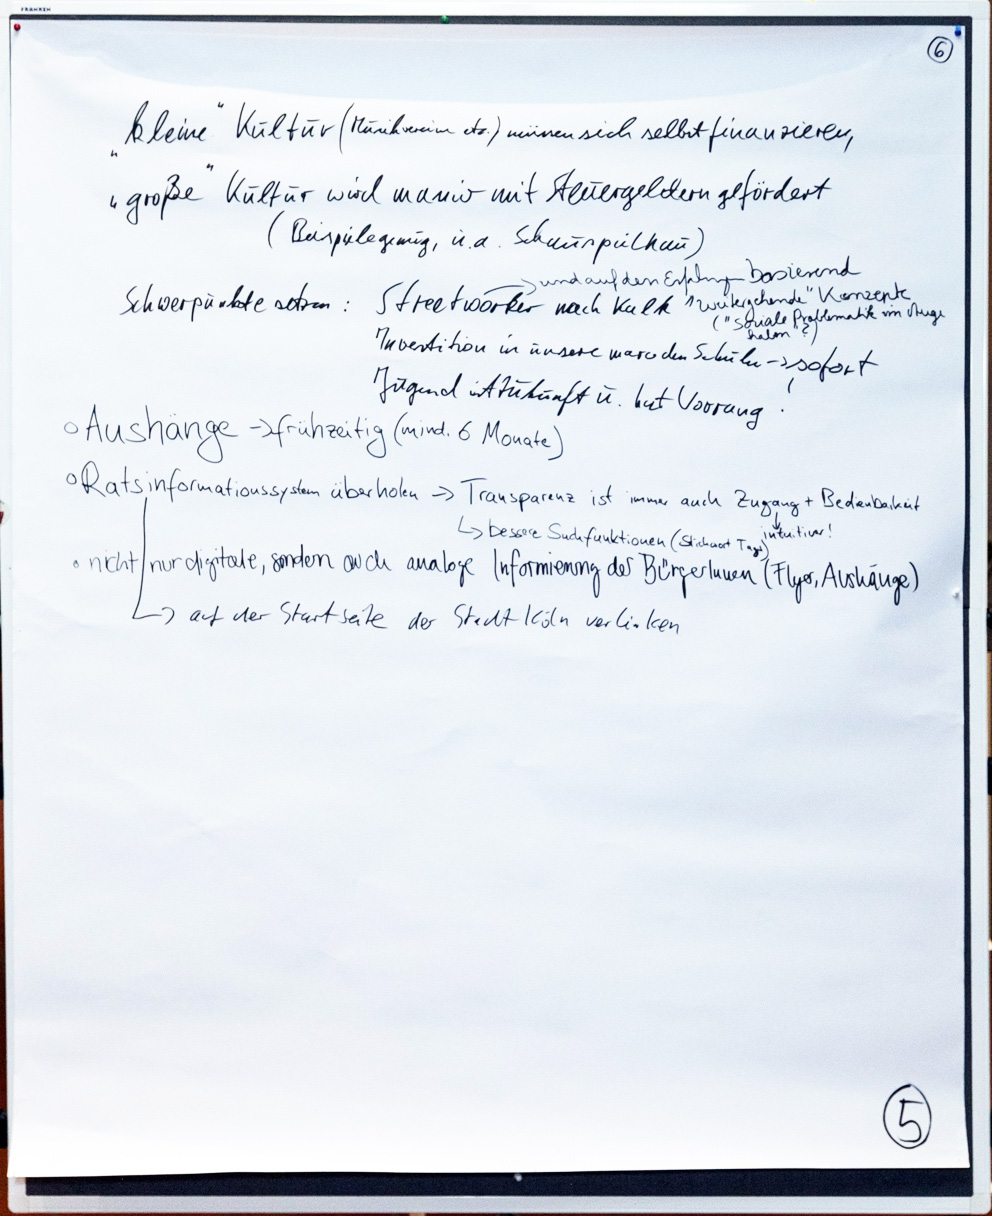 FRANKEN
6
„kleine" Kultur (Musikvereine etc.) müssen sich selbst finanzieren,
„große" Kultur wird massiv mit Steuergeldern gefördert
(Beispiele genug, u.a. Schauspielhaus)
→ und auf den Erfahrungen basierend
Schwerpunkte setzen: Streetworker nach Kalk "weitergehende" Konzepte
("soziale Problematik im Auge
halten"?)
Investition in unsere maroden Schulen → sofort
Jugend ist Zukunft u. hat Vorrang!
o Aushänge → frühzeitig (mind. 6 Monate)
o Ratsinformationssystem überholen → Transparenz ist immer auch Zugang + Bedienbarkeit
↓ intuitiver!
↳ bessere Suchfunktionen (Stichwort Tags)
o nicht nur digitale, sondern auch analoge Informierung der BürgerInnen (Flyer, Aushänge)
↳ auf der Startseite der Stadt Köln verlinken
5